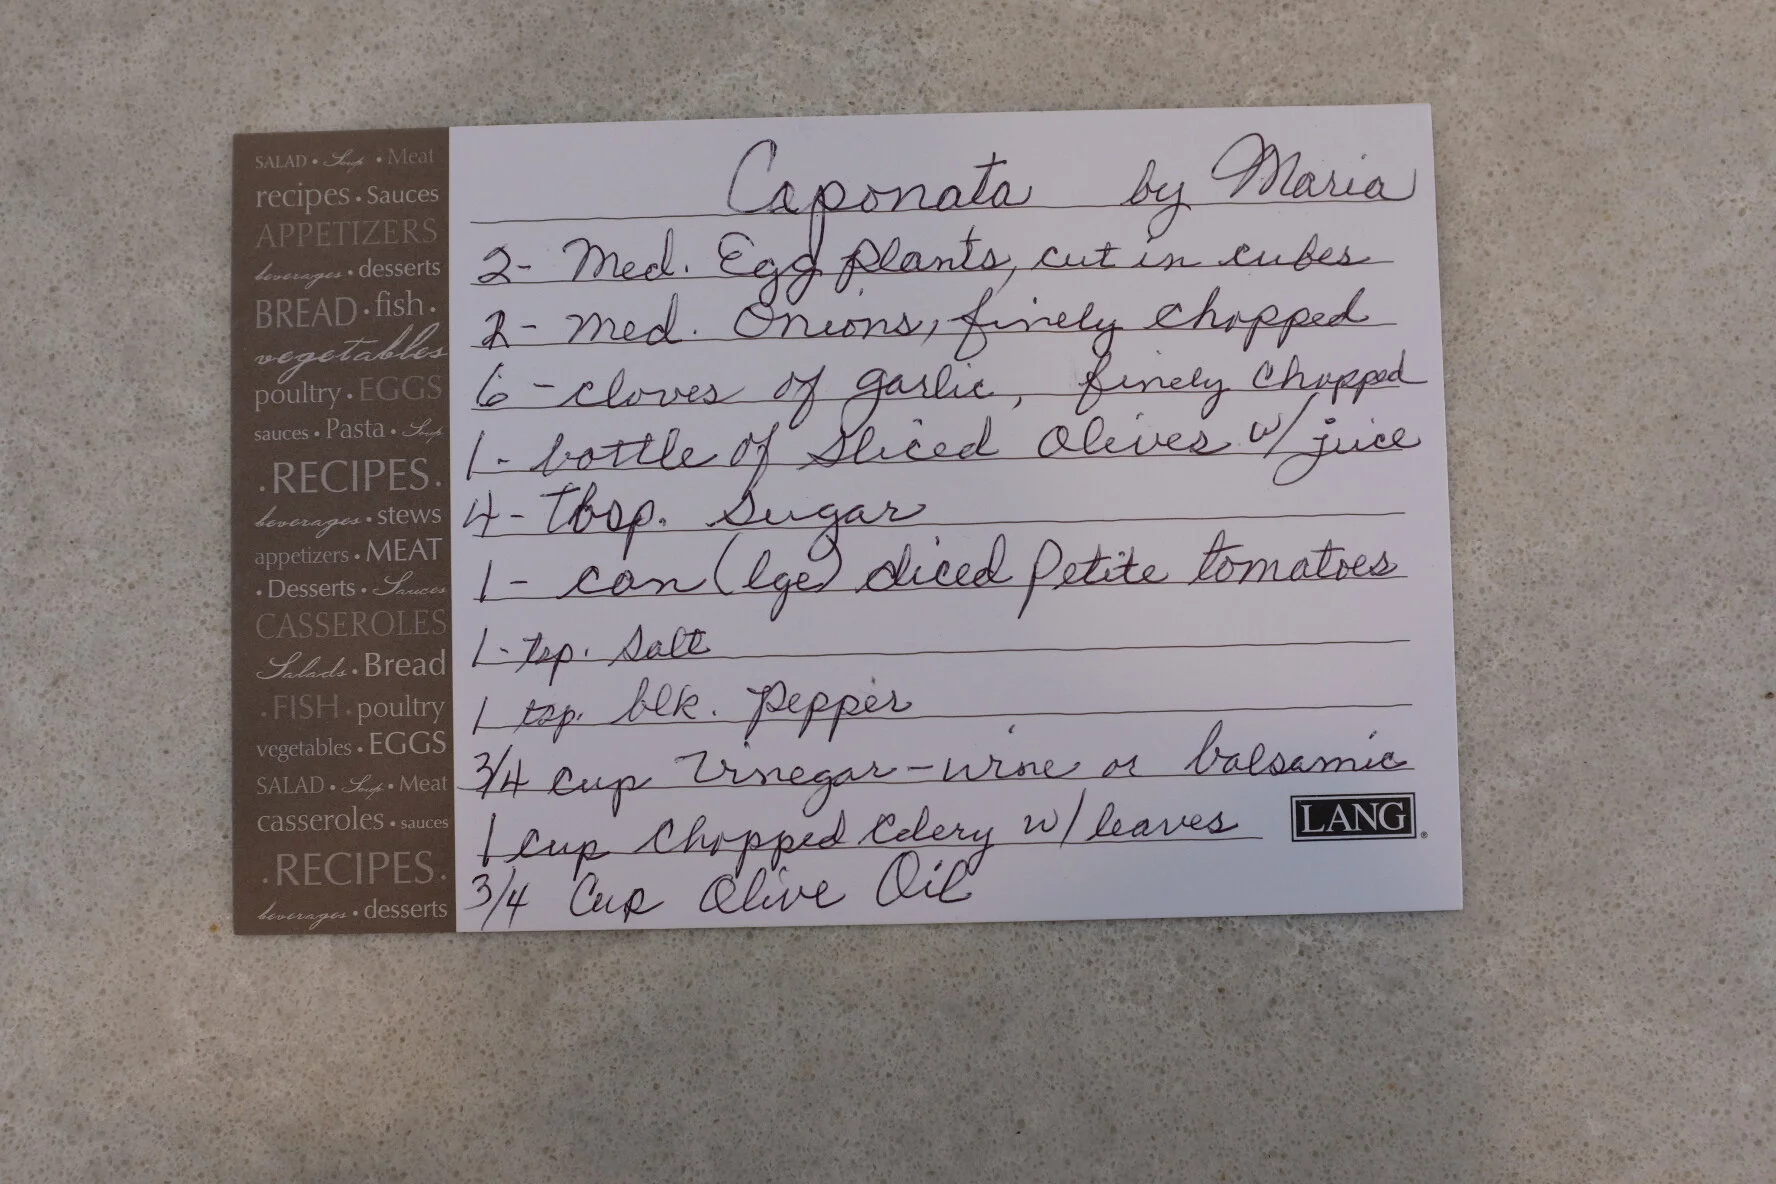 SALAD • Soup • Meat
recipes • Sauces
APPETIZERS
beverages • desserts
BREAD • fish •
vegetables
poultry • EGGS
sauces • Pasta • Soup
• RECIPES •
beverages • stews
appetizers • MEAT
• Desserts • Sauces
CASSEROLES
Salads • Bread
• FISH • poultry
vegetables • EGGS
SALAD • Soup • Meat
casseroles • sauces
• RECIPES •
beverages • desserts
Caponata by Maria
2- Med. Egg plants, cut in cubes
2- Med. Onions, finely chopped
6 - cloves of garlic, finely chopped
1 - bottle of sliced olives w/ juice
4 - Tbsp. Sugar
1 - can (lge) diced petite tomatoes
1 - tsp. salt
1 tsp. blk. pepper
3/4 cup Vinegar - wine or balsamic
1 cup chopped celery w/ leaves
LANG®
3/4 Cup Olive Oil